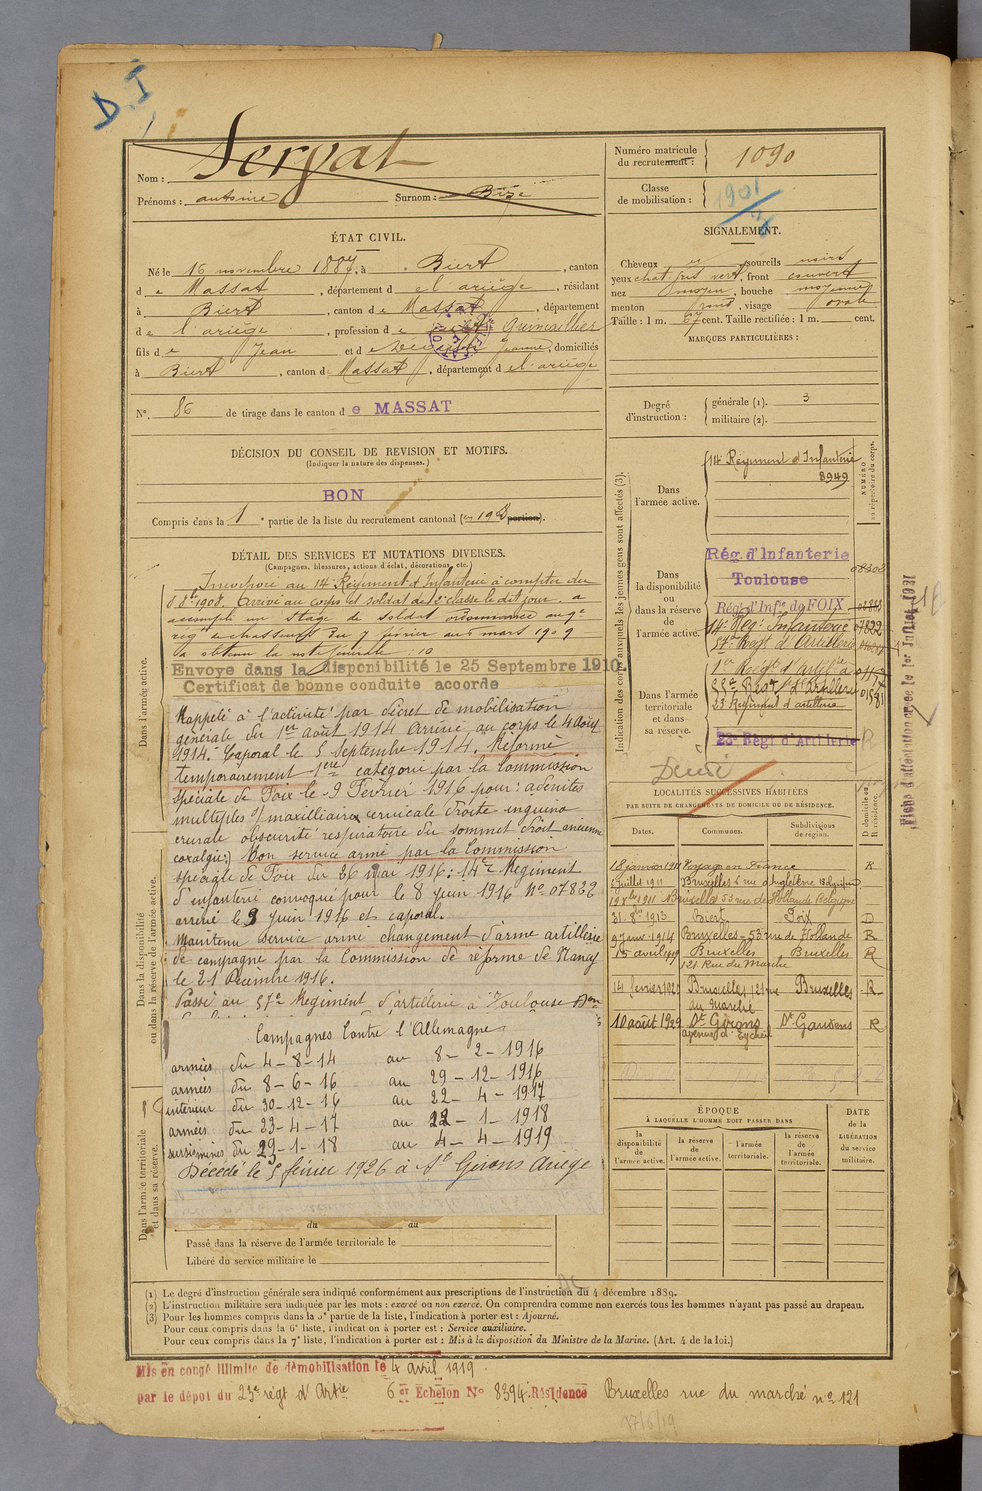 D.I
Servat
Nom :
Prénoms : antoine Surnom : Bize
ÉTAT CIVIL.
Né le 16 novembre 1887, à Biert, canton
de Massat, département de l'ariège, résidant
à Biert, canton de Massat, département
de l'ariège, profession de Quincailler
fils de Jean et de Jeanne, domiciliés
à Biert, canton de Massat, département de l'ariège
N°. 86 de tirage dans le canton de MASSAT
DÉCISION DU CONSEIL DE REVISION ET MOTIFS.
(Indiquer la nature des dispenses.)
BON
Compris dans la 1e partie de la liste du recrutement cantonal (portion).
DÉTAIL DES SERVICES ET MUTATIONS DIVERSES.
(Campagnes, blessures, actions d'éclat, décorations, etc.)
Incorporé au 14e Régiment d'Infanterie à compter du
8 8bre 1908. Arrivé au corps et soldat de 2e classe le dit jour, a
accompli un stage de soldat ordonnance au 9e
rég de chasseurs du 7 février au 6 mars 1909
a obtenu la note générale : 10
Envoye dans la disponibilité le 25 Septembre 1910.
Certificat de bonne conduite accorde
Rappelé à l'activité par décret de mobilisation
générale du 1er août 1914 Arrivé au corps le 4 Août
1914. Caporal le 5 Septembre 1914. Réformé
temporairement 1ere catégorie par la Commission
spéciale de Foix le 9 Février 1916 pour : adénites
multiples s/ maxilliaire cervicale droite inguino
crurale obscurité respiratoire du sommet droit ancienne
coxalgie) Bon service armé par la Commission
spéciale de Foix du 26 mai 1916 : 14e Régiment
d'infanterie convoqué pour le 8 juin 1916 N° 07832
arrivé le 9 juin 1916 et caporal.
Maintenu service armé changement d'arme artillerie
de campagne par la Commission de réforme de Nancy
le 21 Décembre 1916.
Passé au 57e Régiment d'artillerie à Toulouse
Campagnes Contre l'Allemagne
armées du 4-8-14 au 8-2-1916
armées du 8-6-16 au 29-12-1916
intérieur du 30-12-16 au 22-4-1917
armées du 23-4-17 au 22-1-1918
sursis mines du 23-1-18 au 4-4-1919
Décédé le 5 février 1926 à St Girons Ariège
du au
Passé dans la réserve de l'armée territoriale le
Libéré du service militaire le
Dans l'armée active.
Dans la disponibilité
ou dans la réserve de l'armée active.
Dans l'armée territoriale
et dans sa réserve.
Numéro matricule
du recrutement : 1090
Classe
de mobilisation : 1901
SIGNALEMENT.
Cheveux et sourcils noirs
yeux chat. gris vert, front couvert
nez moyen, bouche moyenne
menton rond, visage ovale
Taille : 1 m. 67 cent. Taille rectifiée : 1 m. cent.
MARQUES PARTICULIÈRES :
Degré
d'instruction :
générale (1). 3
militaire (2).
Indication des corps auxquels les jeunes gens sont affectés (3).
NUMÉRO
au répertoire du corps.
Dans
l'armée active.
14e Régiment d'Infanterie
8949
Dans
la disponibilité
ou
dans la réserve
de
l'armée active.
Rég. d'Infanterie
Toulouse
Régt d'Infie de FOIX
14e Rég. Infanterie 07832
57e Regt d'Artillerie
Dans l'armée
territoriale
et dans
sa réserve.
23 Régiment d'artillerie
23e Régt d'Artillerie
Fiche d'affectation
Décédé
LOCALITÉS SUCCESSIVES HABITÉES
PAR SUITE DE CHANGEMENTS DE DOMICILE OU DE RÉSIDENCE.
D domicile ou
R résidence.
Dates. Communes. Subdivisions
de région.
18 janvier 1911 Voyage en France R
Juillet 1911 Bruxelles 2 rue d'Angleterre Belgique
1911 Bruxelles 53 rue de Hollande Belgique
31 8bre 1913 Biert Foix D
9 janv 1914 Bruxelles - 53 rue de Hollande R
15 avril 1919 Bruxelles Bruxelles R
121 Rue du Marché
14 fevrier 1920 Bruxelles 121 rue Bruxelles R
du Marché
10 août 1929 St Girons St Gaudens R
avenue d'Eychei
ÉPOQUE
À LAQUELLE L'HOMME DOIT PASSER DANS
la
disponibilité
de
l'armée active.
la réserve
de
l'armée active.
l'armée
territoriale.
la réserve
de
l'armée
territoriale.
DATE
de la
LIBÉRATION
du service
militaire.
(1) Le degré d'instruction générale sera indiqué conformément aux prescriptions de l'instruction du 4 décembre 1889.
(2) L'instruction militaire sera indiquée par les mots : exercé ou non exercé. On comprendra comme non exercés tous les hommes n'ayant pas passé au drapeau.
(3) Pour les hommes compris dans la 5e partie de la liste, l'indication à porter est : Ajourné.
Pour ceux compris dans la 6e liste, l'indication à porter est : Service auxiliaire.
Pour ceux compris dans la 7e liste, l'indication à porter est : Mis à la disposition du Ministre de la Marine. (Art. 4 de la loi.)
Mis en congé illimité de démobilisation le 4 avril 1919.
par le dépot du 23e régt d'Artie 6er Echelon N° 8394. Résidence Bruxelles rue du marché n° 121
17/6/19